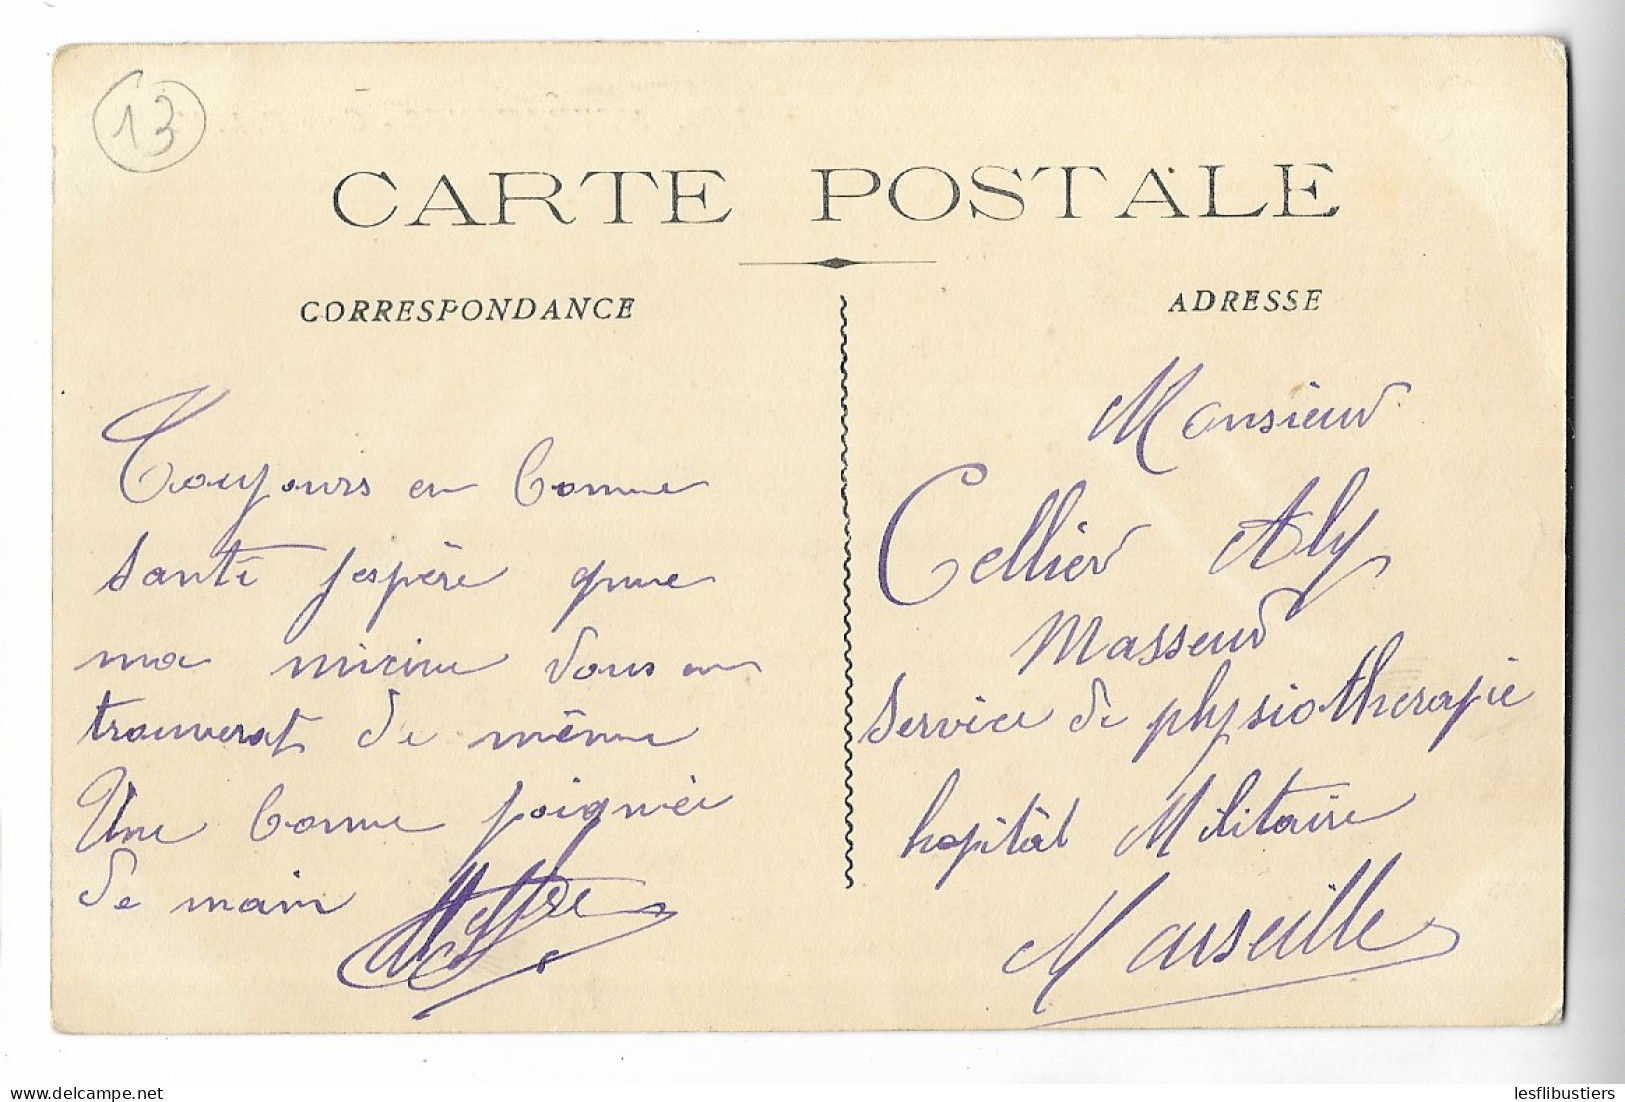 13
CARTE POSTALE
CORRESPONDANCE
Toujours en bonne
Santé j'espère que
ma mixive vous en
trouverat de même
Une bonne poignée
de main
ADRESSE
Monsieur
Cellier Aly
Masseur
Service de physiotherapie
hopitàl Militaire
Marseille
lesflibustiers